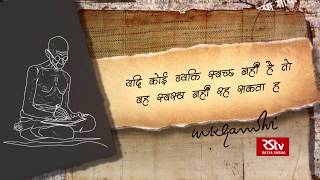 यदि कोई व्यक्ति स्वच्छ नहीं है तो
वह स्वस्थ नहीं रह सकता है
mkgandhi
RSTV
RAJYA SABHA